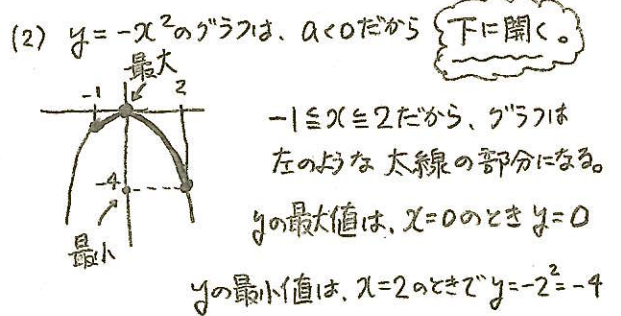 (2) y=-x²のグラフは、a<0だから 下に開く。
最大
-1 2
-1≦x≦2だから、グラフは
左のような 太線の部分になる。
-4
yの最大値は、x=0のときy=0
最小
yの最小値は、x=2のときでy=-2²=-4